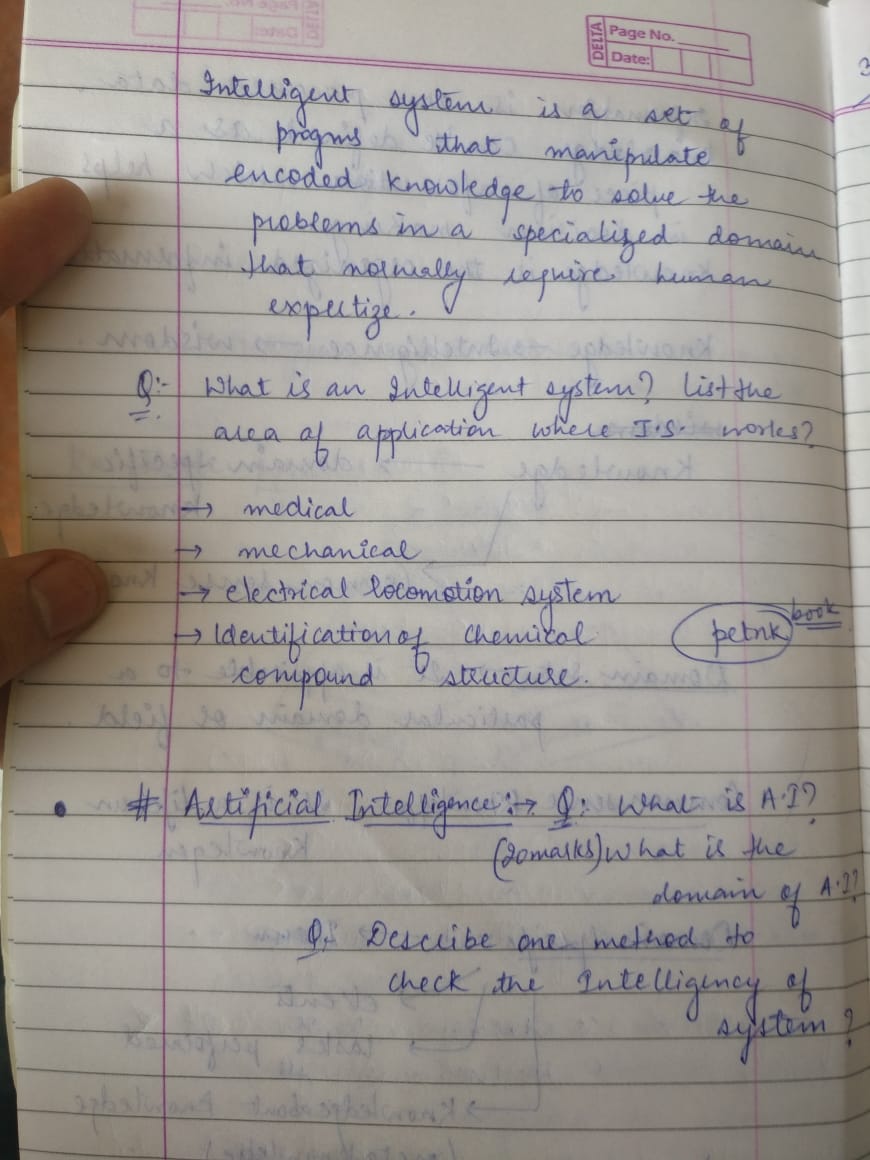 DELTA
Page No.
Date:
Intelligent system is a set of
progms that manipulate
encoded knowledge to solve the
problems in a specialized domain
that normally require human
expertize.
Q:- What is an Intelligent system? List the
area of application where I.S. works?
→ medical
→ mechanical
→ electrical locomotion system
→ Identification of chemical
compound structure.
book
# Artificial Intelligence:→ Q: What is A.I?
(20marks) What is the
domain of A.I?
Q. Describe one method to
check the Intelligency of
system?